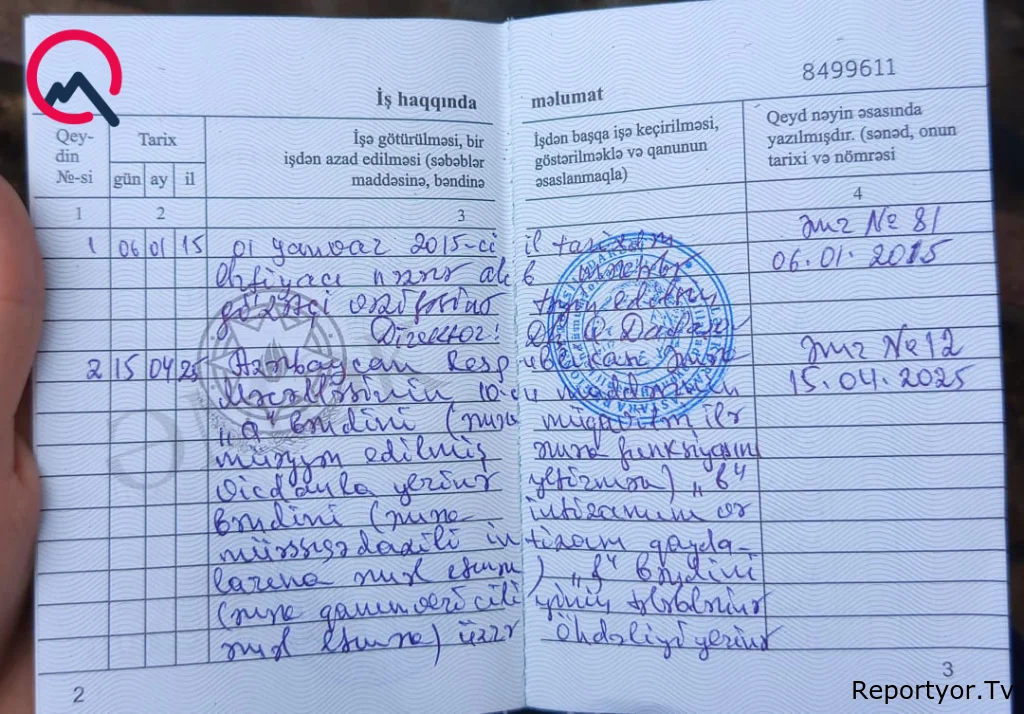 8499611
İş haqqında məlumat
Qey-
din
№-si
Tarix
gün ay il
İşə götürülməsi, bir
işdən azad edilməsi (səbəblər
maddəsinə, bəndinə
İşdən başqa işə keçirilməsi,
göstərilməklə və qanunun
əsaslanmaqla)
Qeyd nəyin əsasında
yazılmışdır. (sənəd, onun
tarixi və nömrəsi
1 2 3 4
1 06 01 15 01 yanvar 2015-ci il tarixdən əmr № 81
06.01.2015
ehtiyacı nəzər alıb
gözətçi vəzifəsinə təyin edilsin
Direktor:
2 15 04 25 Azərbaycan Respublikası əmr № 12
Məcəlləsinin 10-cu maddəsinin 15.04.2025
„a“ bəndini (əmək müqaviləsi ilə
müəyyən edilmiş əmək funksiyasını
vicdanla yerinə yetirmək) „b“
bəndini (əmək intizamına və
müəssisədaxili intizam qayda-
larına əməl etmək) bəndini
(əmək qanunvericiliyinin tələblərinə
əməl etmək) üzrə öhdəliyi yerinə
2
3
Reportyor.Tv